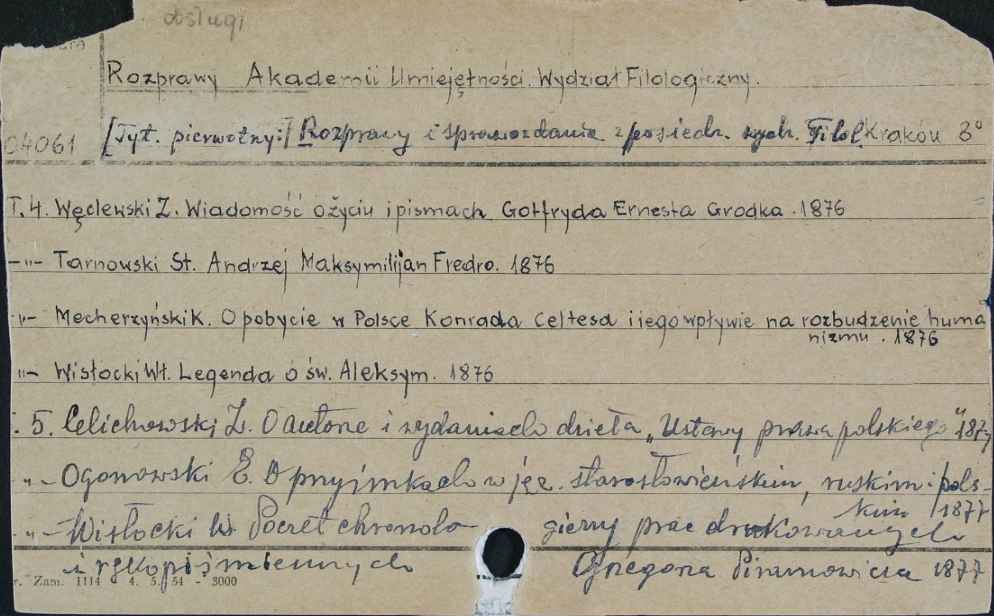 obsługi
Rozprawy Akademii Umiejętności. Wydział Filologiczny.
04061 [Tyt. pierwotny:] Rozprawy i sprawozdania z posiedz. wydz. Filol. Kraków 8°
T. 4. Węclewski Z. Wiadomość o życiu i pismach Gotfryda Ernesta Grodka. 1876
-"- Tarnowski St. Andrzej Maksymilijan Fredro. 1876
-"- Mecherzyński K. O pobycie w Polsce Konrada Celtesa i jego wpływie na rozbudzenie huma
nizmu. 1876
-"- Wisłocki Wł. Legenda o św. Aleksym. 1876
T. 5. Celichowski Z. O autorze i wydaniach dzieła „Ustawy prawa polskiego" 1877
-"- Ogonowski E. O przyimkach w jęz. starosłowieńskim, ruskim i pols-
kim 1877
-"- Wisłocki W. Poczet chronolo giczny prac drukowanych
i rękopiśmiennych Grzegorza Piramowicza 1877
r. Zam. 1114 - 4. 5. 54 - 3000